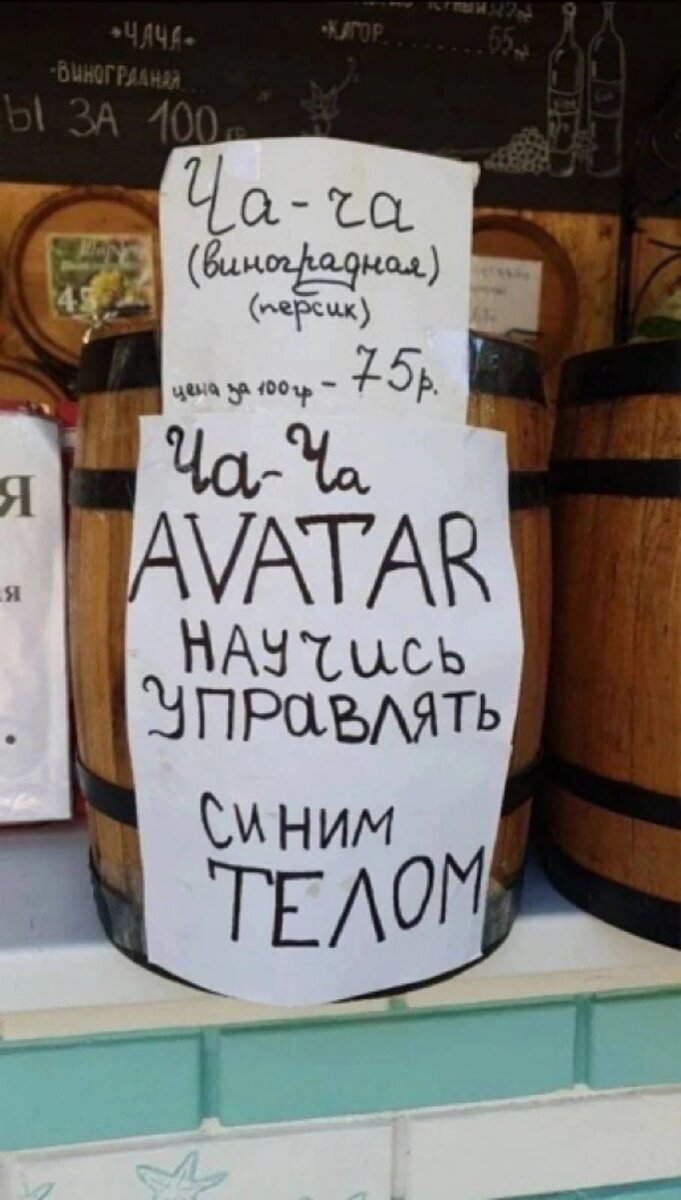 •ЧАЧА•
•ВИНОГРАДНАЯ
•КАГОР 65
Ы ЗА 100 гр
Ча-ча
(виноградная)
(персик)
цена за 100 гр - 75р.
Ча-Ча
AVATAR
НАУЧИСЬ
УПРАВЛЯТЬ
СИНИМ
ТЕЛОМ
Я
я